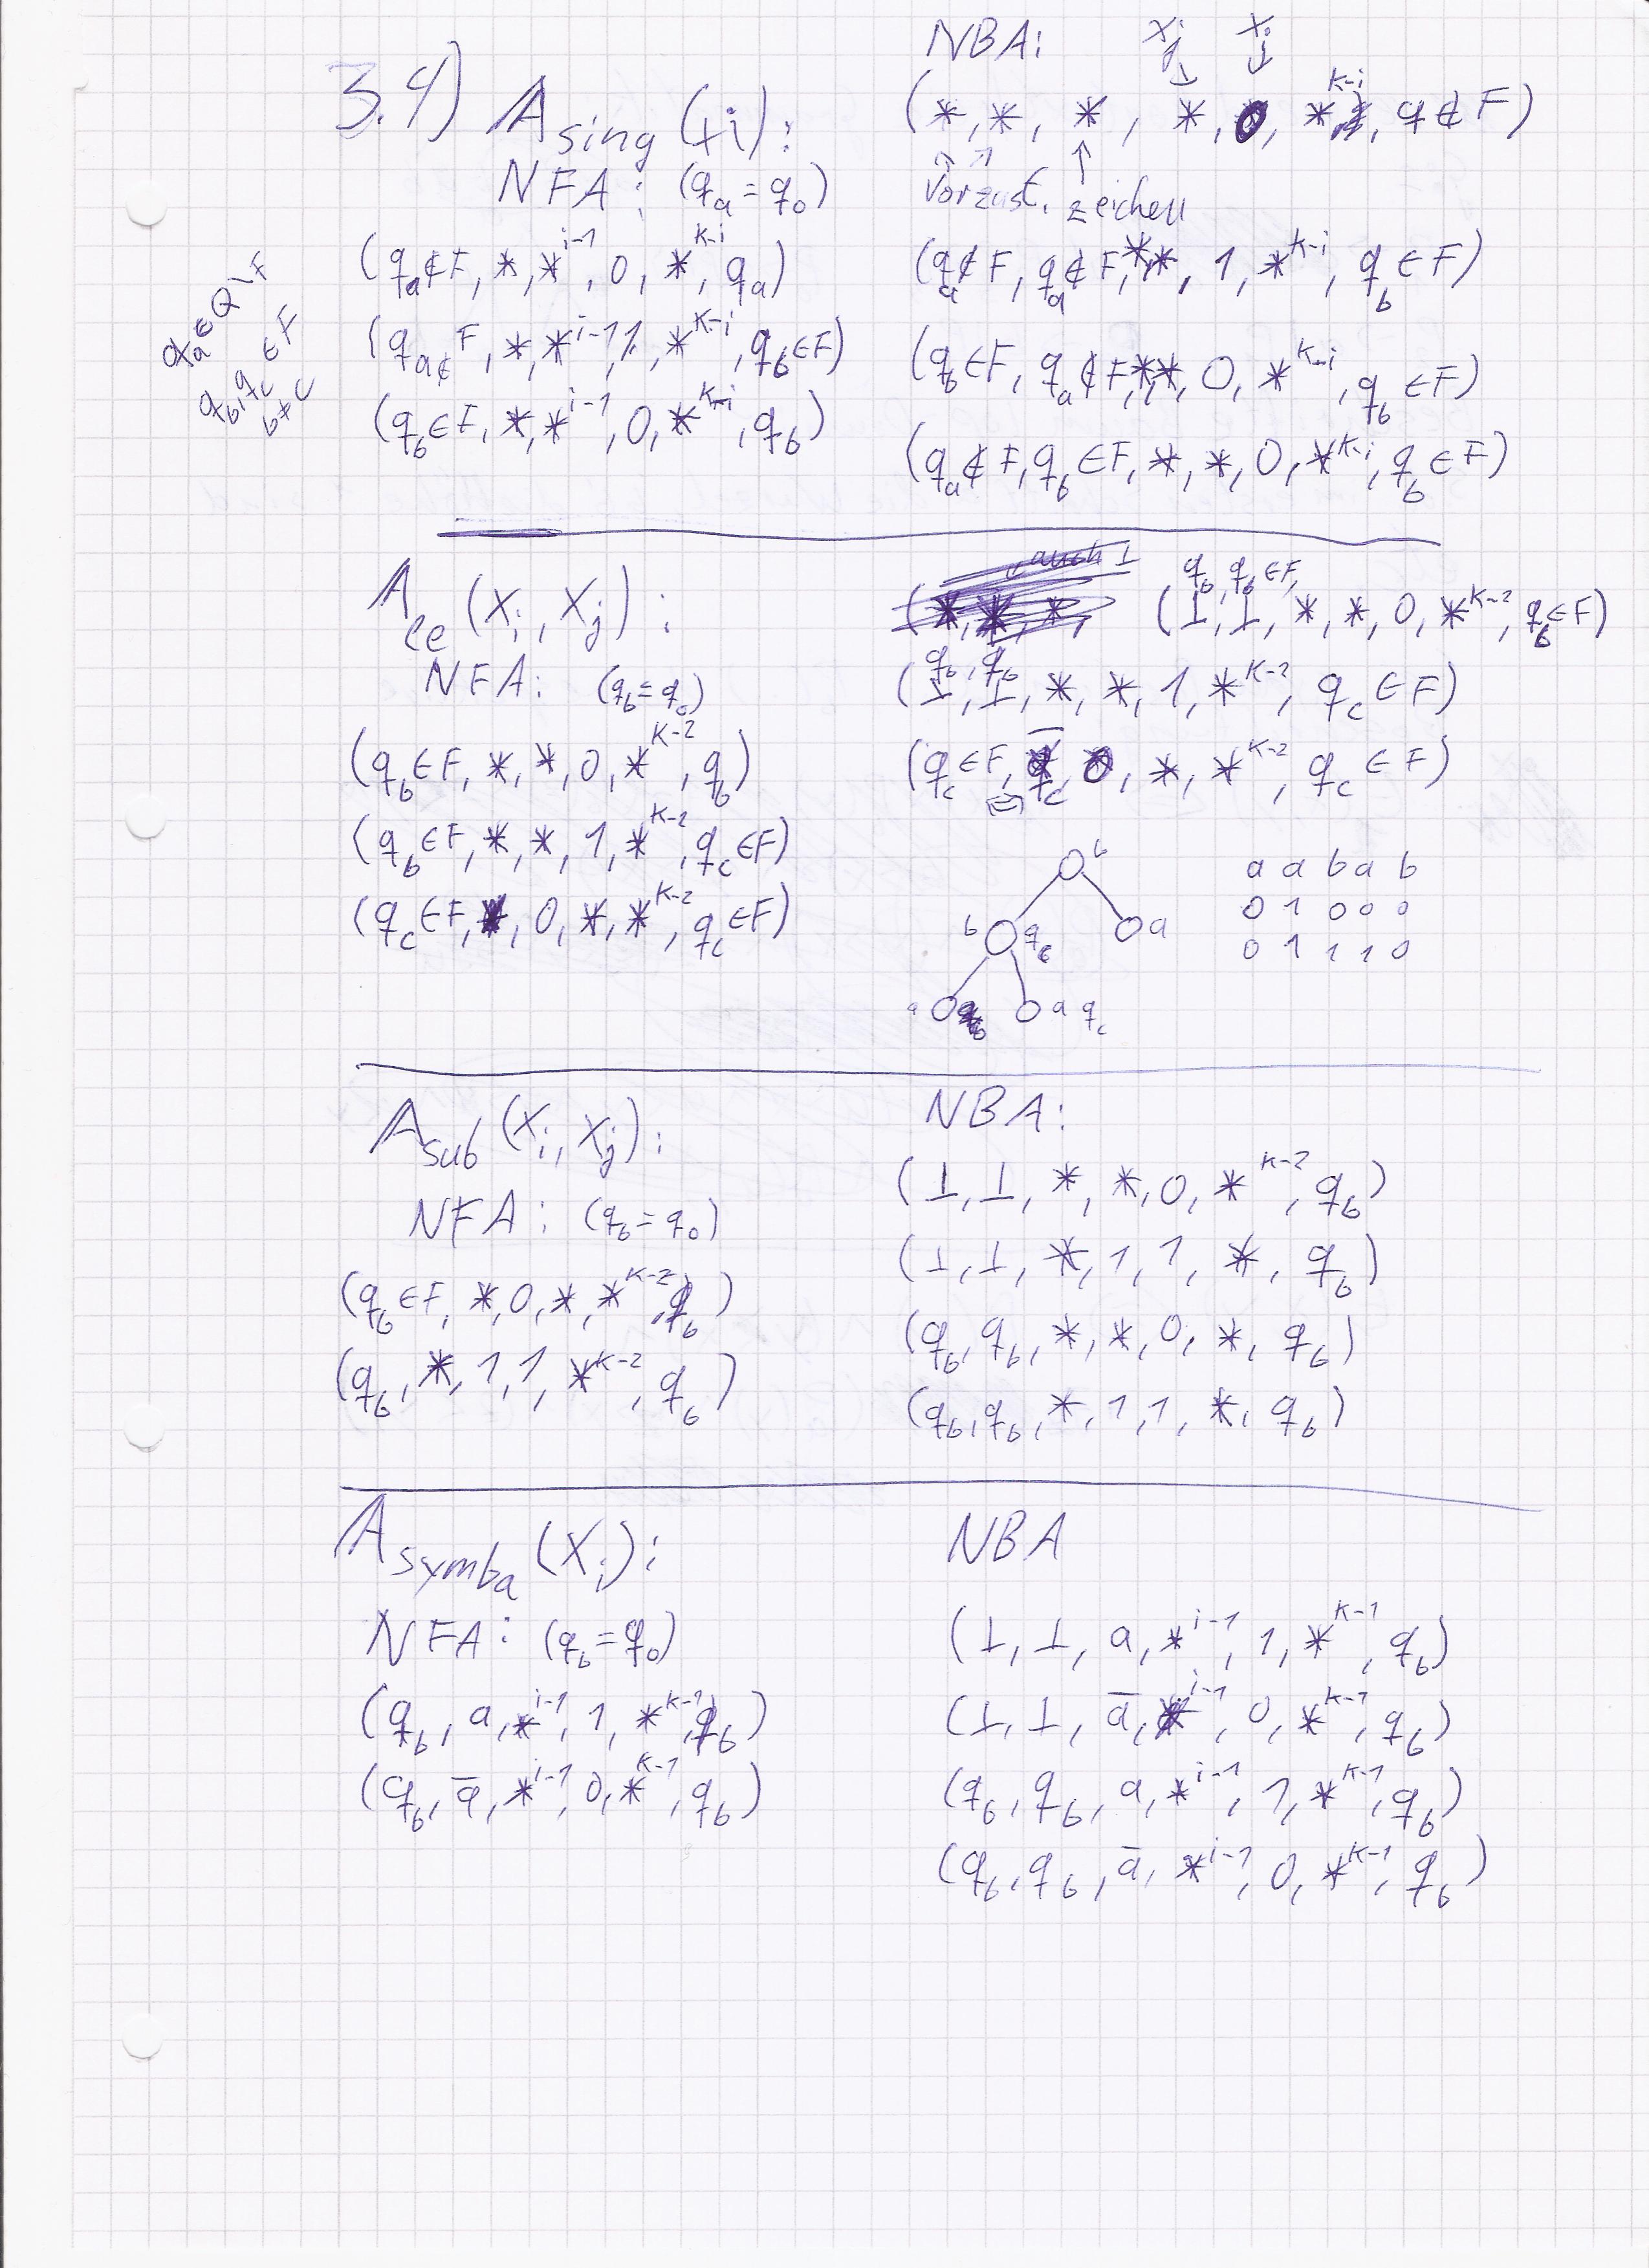 3.4) A_sing (x_i):
NFA: (q_a = q_0)
(q_a ∉ F, *, *^{i-1}, 0, *^{k-i}, q_a)
(q_a ∉ F, *, *^{i-1}, 1, *^{k-i}, q_b ∈ F)
(q_b ∈ F, *, *^{i-1}, 0, *^{k-i}, q_b)
q_a ∈ Q \ F
q_b, q_c ∈ F
b ≠ c
NBA: x_j x_i
(*, *, *, *, 0, *^{k-i}, q ∉ F)
Vorzust. zeichen
(q_a ∉ F, q_a ∉ F, *, *, 1, *^{k-i}, q_b ∈ F)
(q_b ∈ F, q_a ∉ F, *, *, 0, *^{k-i}, q_b ∈ F)
(q_a ∉ F, q_b ∈ F, *, *, 0, *^{k-i}, q_b ∈ F)
A_le (X_i, X_j):
NFA: (q_b = q_0)
(q_b ∈ F, *, *, 0, *^{k-2}, q_b)
(q_b ∈ F, *, *, 1, *^{k-2}, q_c ∈ F)
(q_c ∈ F, *, 0, *, *^{k-2}, q_c ∈ F)
auch ⊥
(*, *, *,
q_b, q_b ∈ F,
(⊥, ⊥, *, *, 0, *^{k-2}, q_b ∈ F)
q_b, q_b
(⊥, ⊥, *, *, 1, *^{k-2}, q_c ∈ F)
(q_c ∈ F, q_c, 0, *, *^{k-2}, q_c ∈ F)
b
b q_c a
a q_b a q_c
a a b a b
0 1 0 0 0
0 1 1 1 0
A_sub (X_i, X_j):
NFA: (q_b = q_0)
(q_b ∈ F, *, 0, *, *^{k-2}, q_b)
(q_b, *, 1, 1, *^{k-2}, q_b)
NBA:
(⊥, ⊥, *, *, 0, *^{k-2}, q_b)
(⊥, ⊥, *, 1, 1, *, q_b)
(q_b, q_b, *, *, 0, *, q_b)
(q_b, q_b, *, 1, 1, *, q_b)
A_symb_a (X_i):
NFA: (q_b = q_0)
(q_b, a, *^{i-1}, 1, *^{k-1}, q_b)
(q_b, ā, *^{i-1}, 0, *^{k-1}, q_b)
NBA
(⊥, ⊥, a, *^{i-1}, 1, *^{k-1}, q_b)
(⊥, ⊥, ā, *^{i-1}, 0, *^{k-1}, q_b)
(q_b, q_b, a, *^{i-1}, 1, *^{k-1}, q_b)
(q_b, q_b, ā, *^{i-1}, 0, *^{k-1}, q_b)